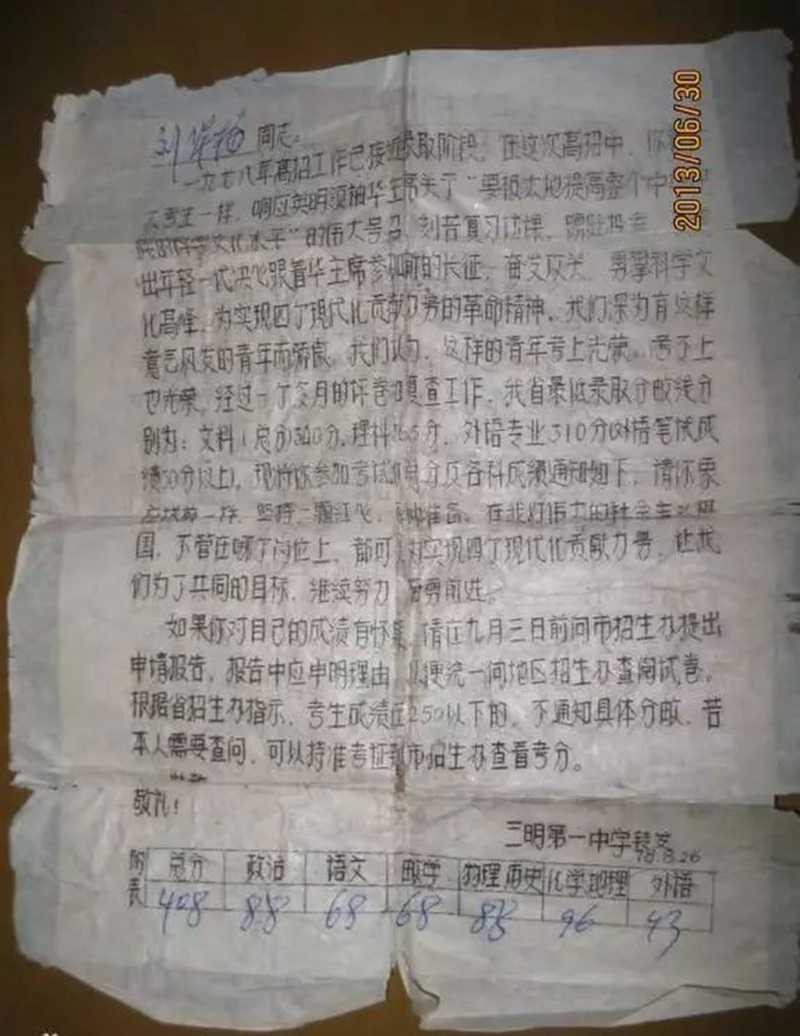 刘 同志。
一九七八年高招工作已接近录取阶段。在这次高招中，你
一样，响应英明领袖华主席关于“要极大地提高整个中
科学文化水平”的伟大号召，刻苦复习功课，踊跃
出年轻一代决心跟着华主席 新的长征，奋发 ，勇攀科学文
化高峰，为实现四个现代化贡献力量的革命精神。我们深为有这样
意气风发的青年而骄傲。我们认为，这样的青年考上光荣，考不上
也光荣。经过一个多月的评卷和复查工作，我省最低录取分数线分
别为：文科（总分）300分，理科 分，外语专业310分（外语笔试成
绩50分以上）。现将你参加考试的总分及各科成绩通知如下，请你象
一样，坚持一颗红心， 准备。在我们伟大的社会主义祖
国，不管在哪个岗位上，都可 为实现四个现代化贡献力量，让我
们为了共同的目标，继续努力 奋勇前进。
如果你对自己的成绩有怀疑，请在九月三日前向市招生办提出
申请报告，报告中应申明理由，以便统一向地区招生办查阅试卷。
根据省招生办指示，考生成绩在250以下的，不通知具体分数，若
本人需要查问，可以持准考证到市招生办查看考分。
敬礼！
三明第一中学
78.8.26
附表 总分 政治 语文 数学 物理历史 化学地理 外语
408 88 68 68 88 96 43
2013/06/30